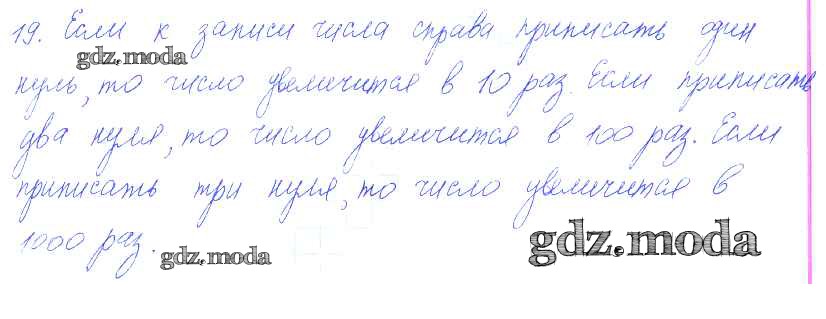 19. Если к записи числа справа приписать один
gdz.moda
нуль, то число увеличится в 10 раз. Если приписать
два нуля, то число увеличится в 100 раз. Если
приписать три нуля, то число увеличится в
1000 раз.
gdz.moda
gdz.moda